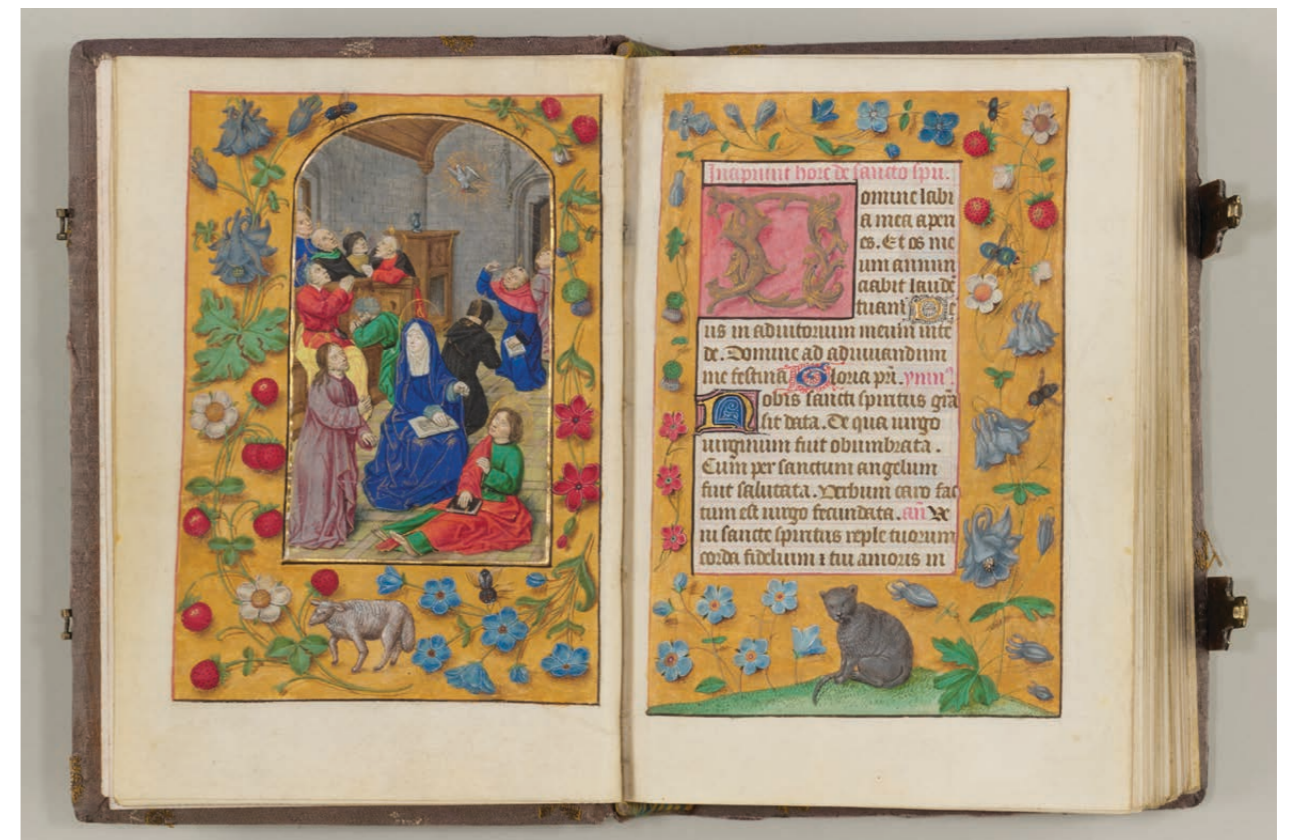 Incipiunt hore de sancto spu.
Domine labi
a mea aperi
es. Et os me
um annun
ciabit laudē
tuam De
us in adiutorium meum inte
de. Domine ad adiuuandum
me festina Gloria pri. ymn⁹.
Nobis sancti spiritus gr̄a
sit data. De qua uirgo
uirginum fuit obumbrata.
Cum per sanctum angelum
fuit salutata. Verbum caro fac
tum est uirgo fecundata. an̄ Ve
ni sancte spiritus reple tuorum
corda fidelium ⁊ tui amoris in